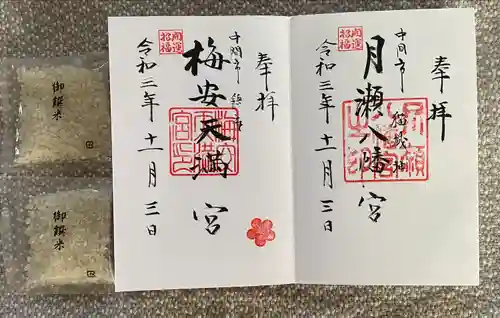 奉拝
中間市
猫城址
月瀬八幡宮
開運
招福
令和三年十一月三日
奉拝
中間市
梅安天満宮
開運
招福
令和三年十一月三日
御饌米
御饌米